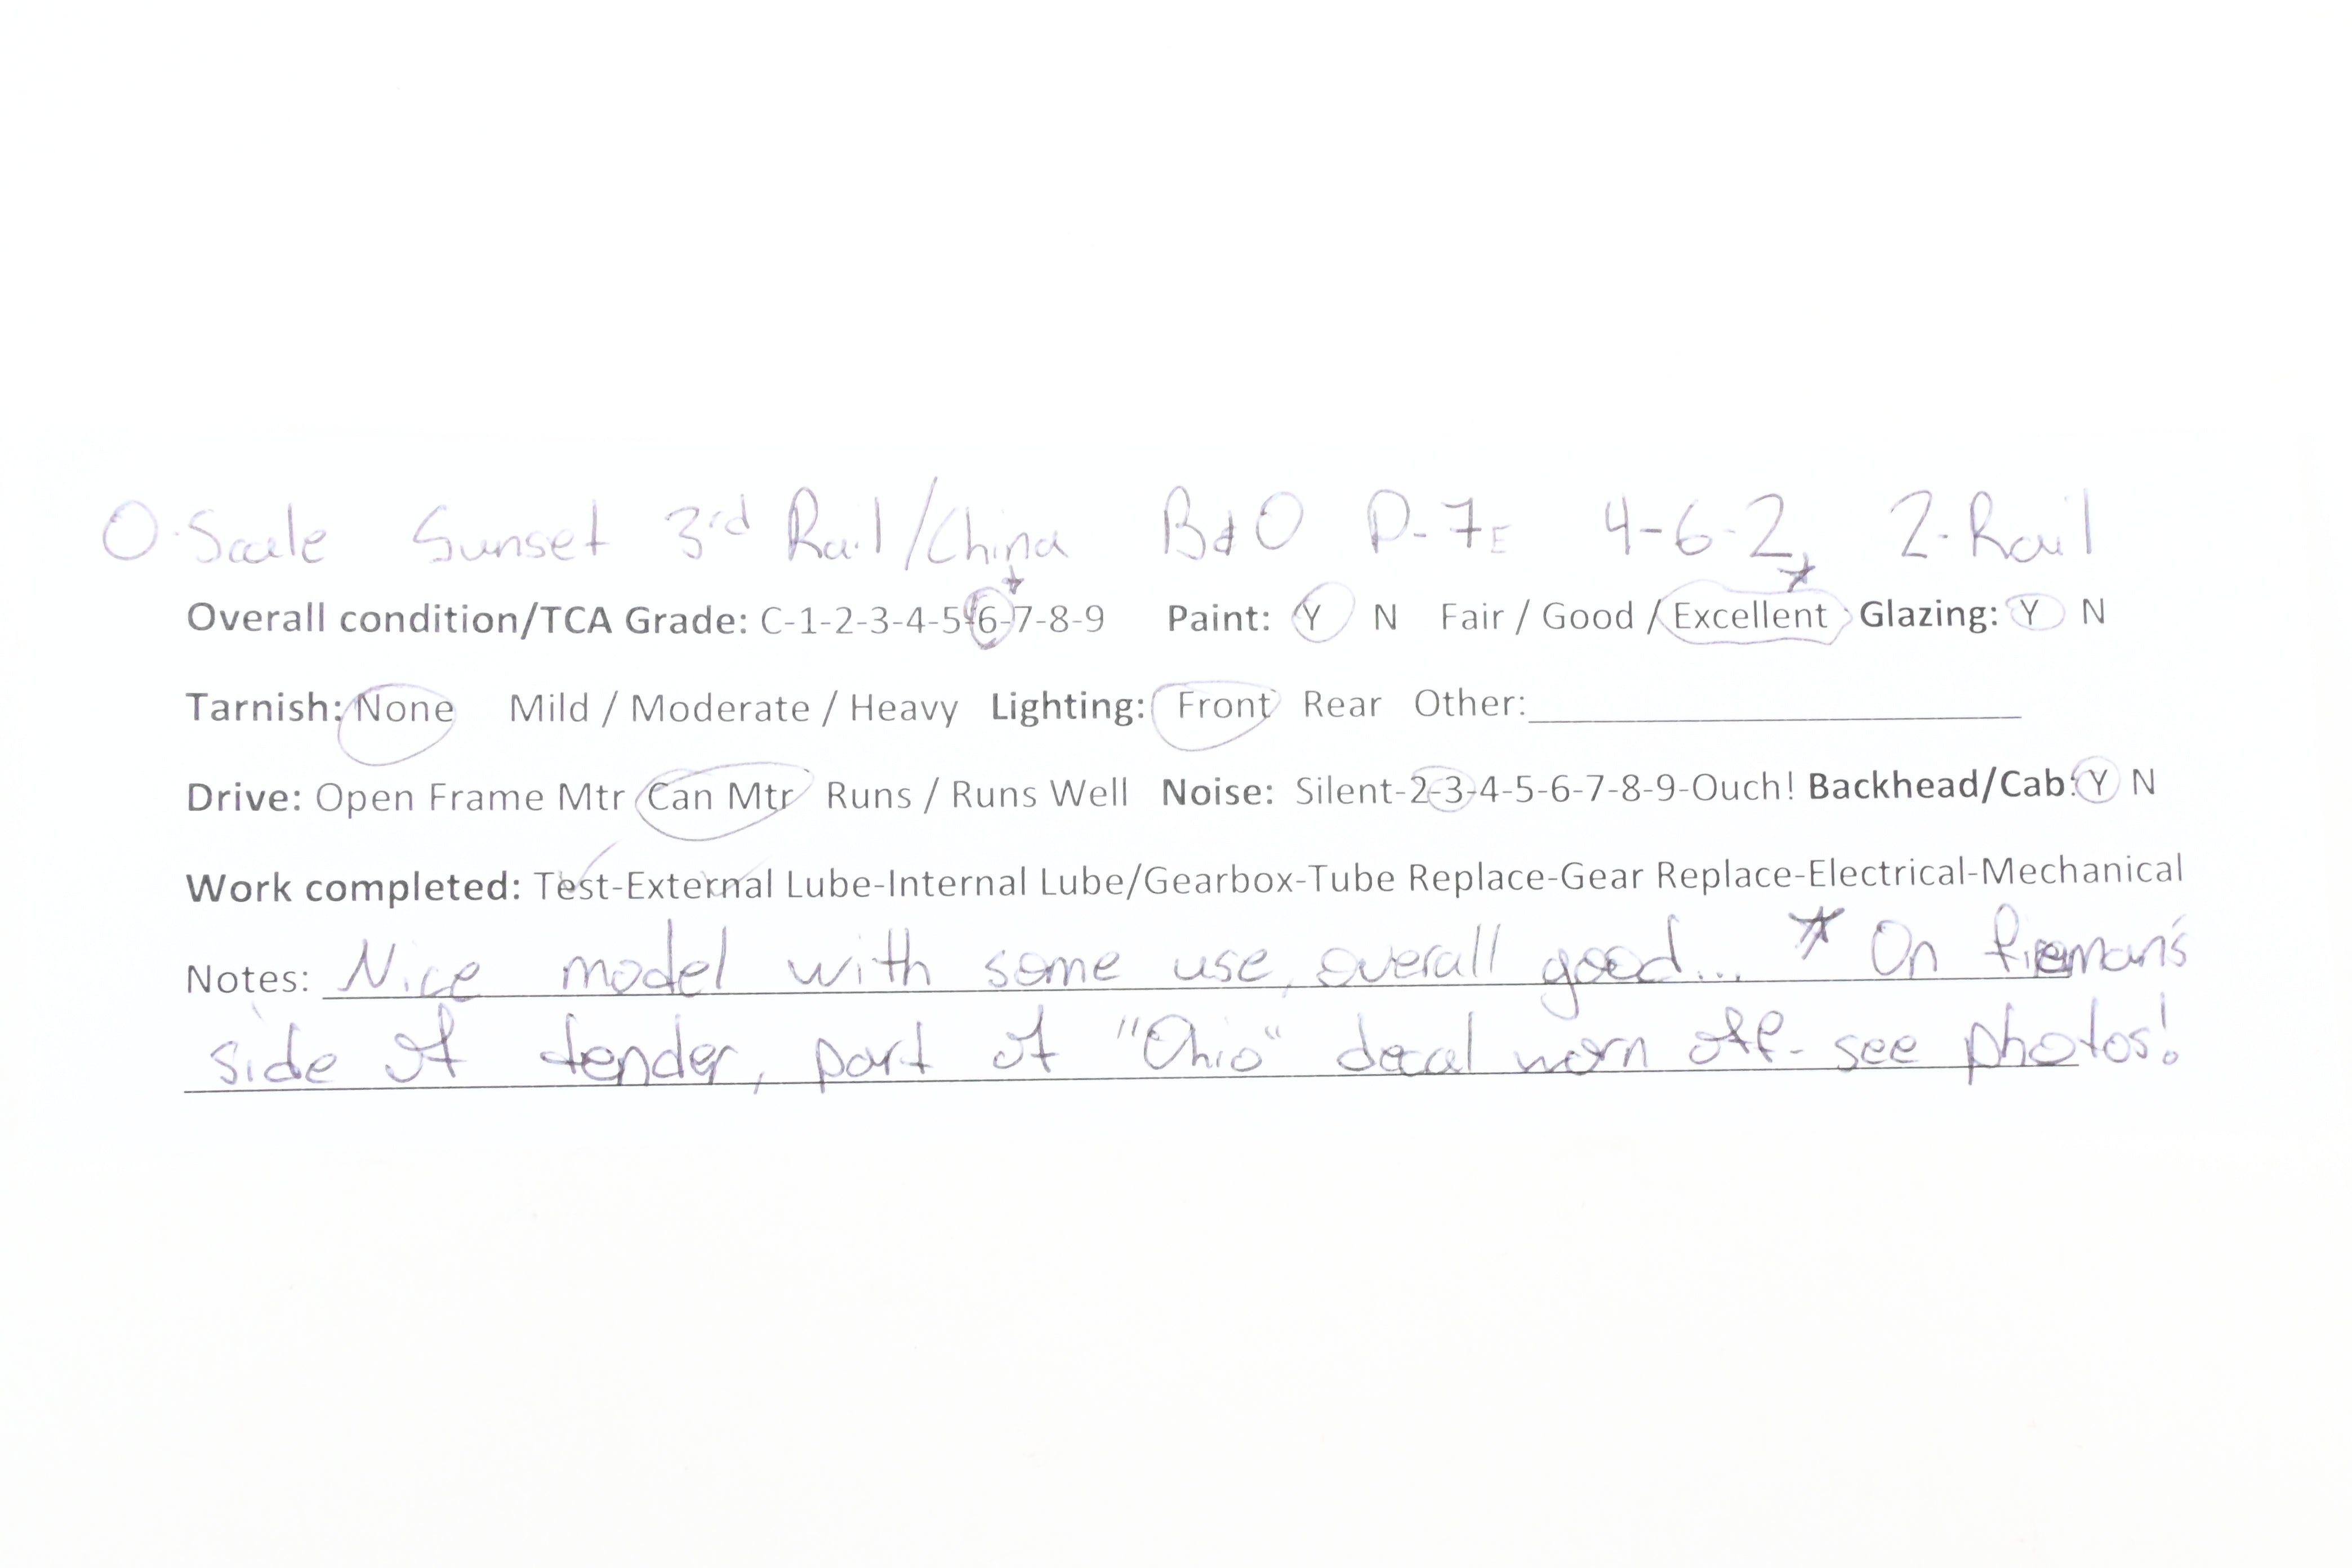 O-Scale Sunset 3rd Rail/China B&O P-7E 4-6-2, 2-Rail
Overall condition/TCA Grade: C-1-2-3-4-5-6-7-8-9 Paint: Y N Fair / Good / Excellent Glazing: Y N
Tarnish: None Mild / Moderate / Heavy Lighting: Front Rear Other:
Drive: Open Frame Mtr Can Mtr Runs / Runs Well Noise: Silent-2-3-4-5-6-7-8-9-Ouch! Backhead/Cab: Y N
Work completed: Test-External Lube-Internal Lube/Gearbox-Tube Replace-Gear Replace-Electrical-Mechanical
Notes: Nice model with some use, overall good... * On fireman's
side of tender, part of "Ohio" decal worn off- see photos!